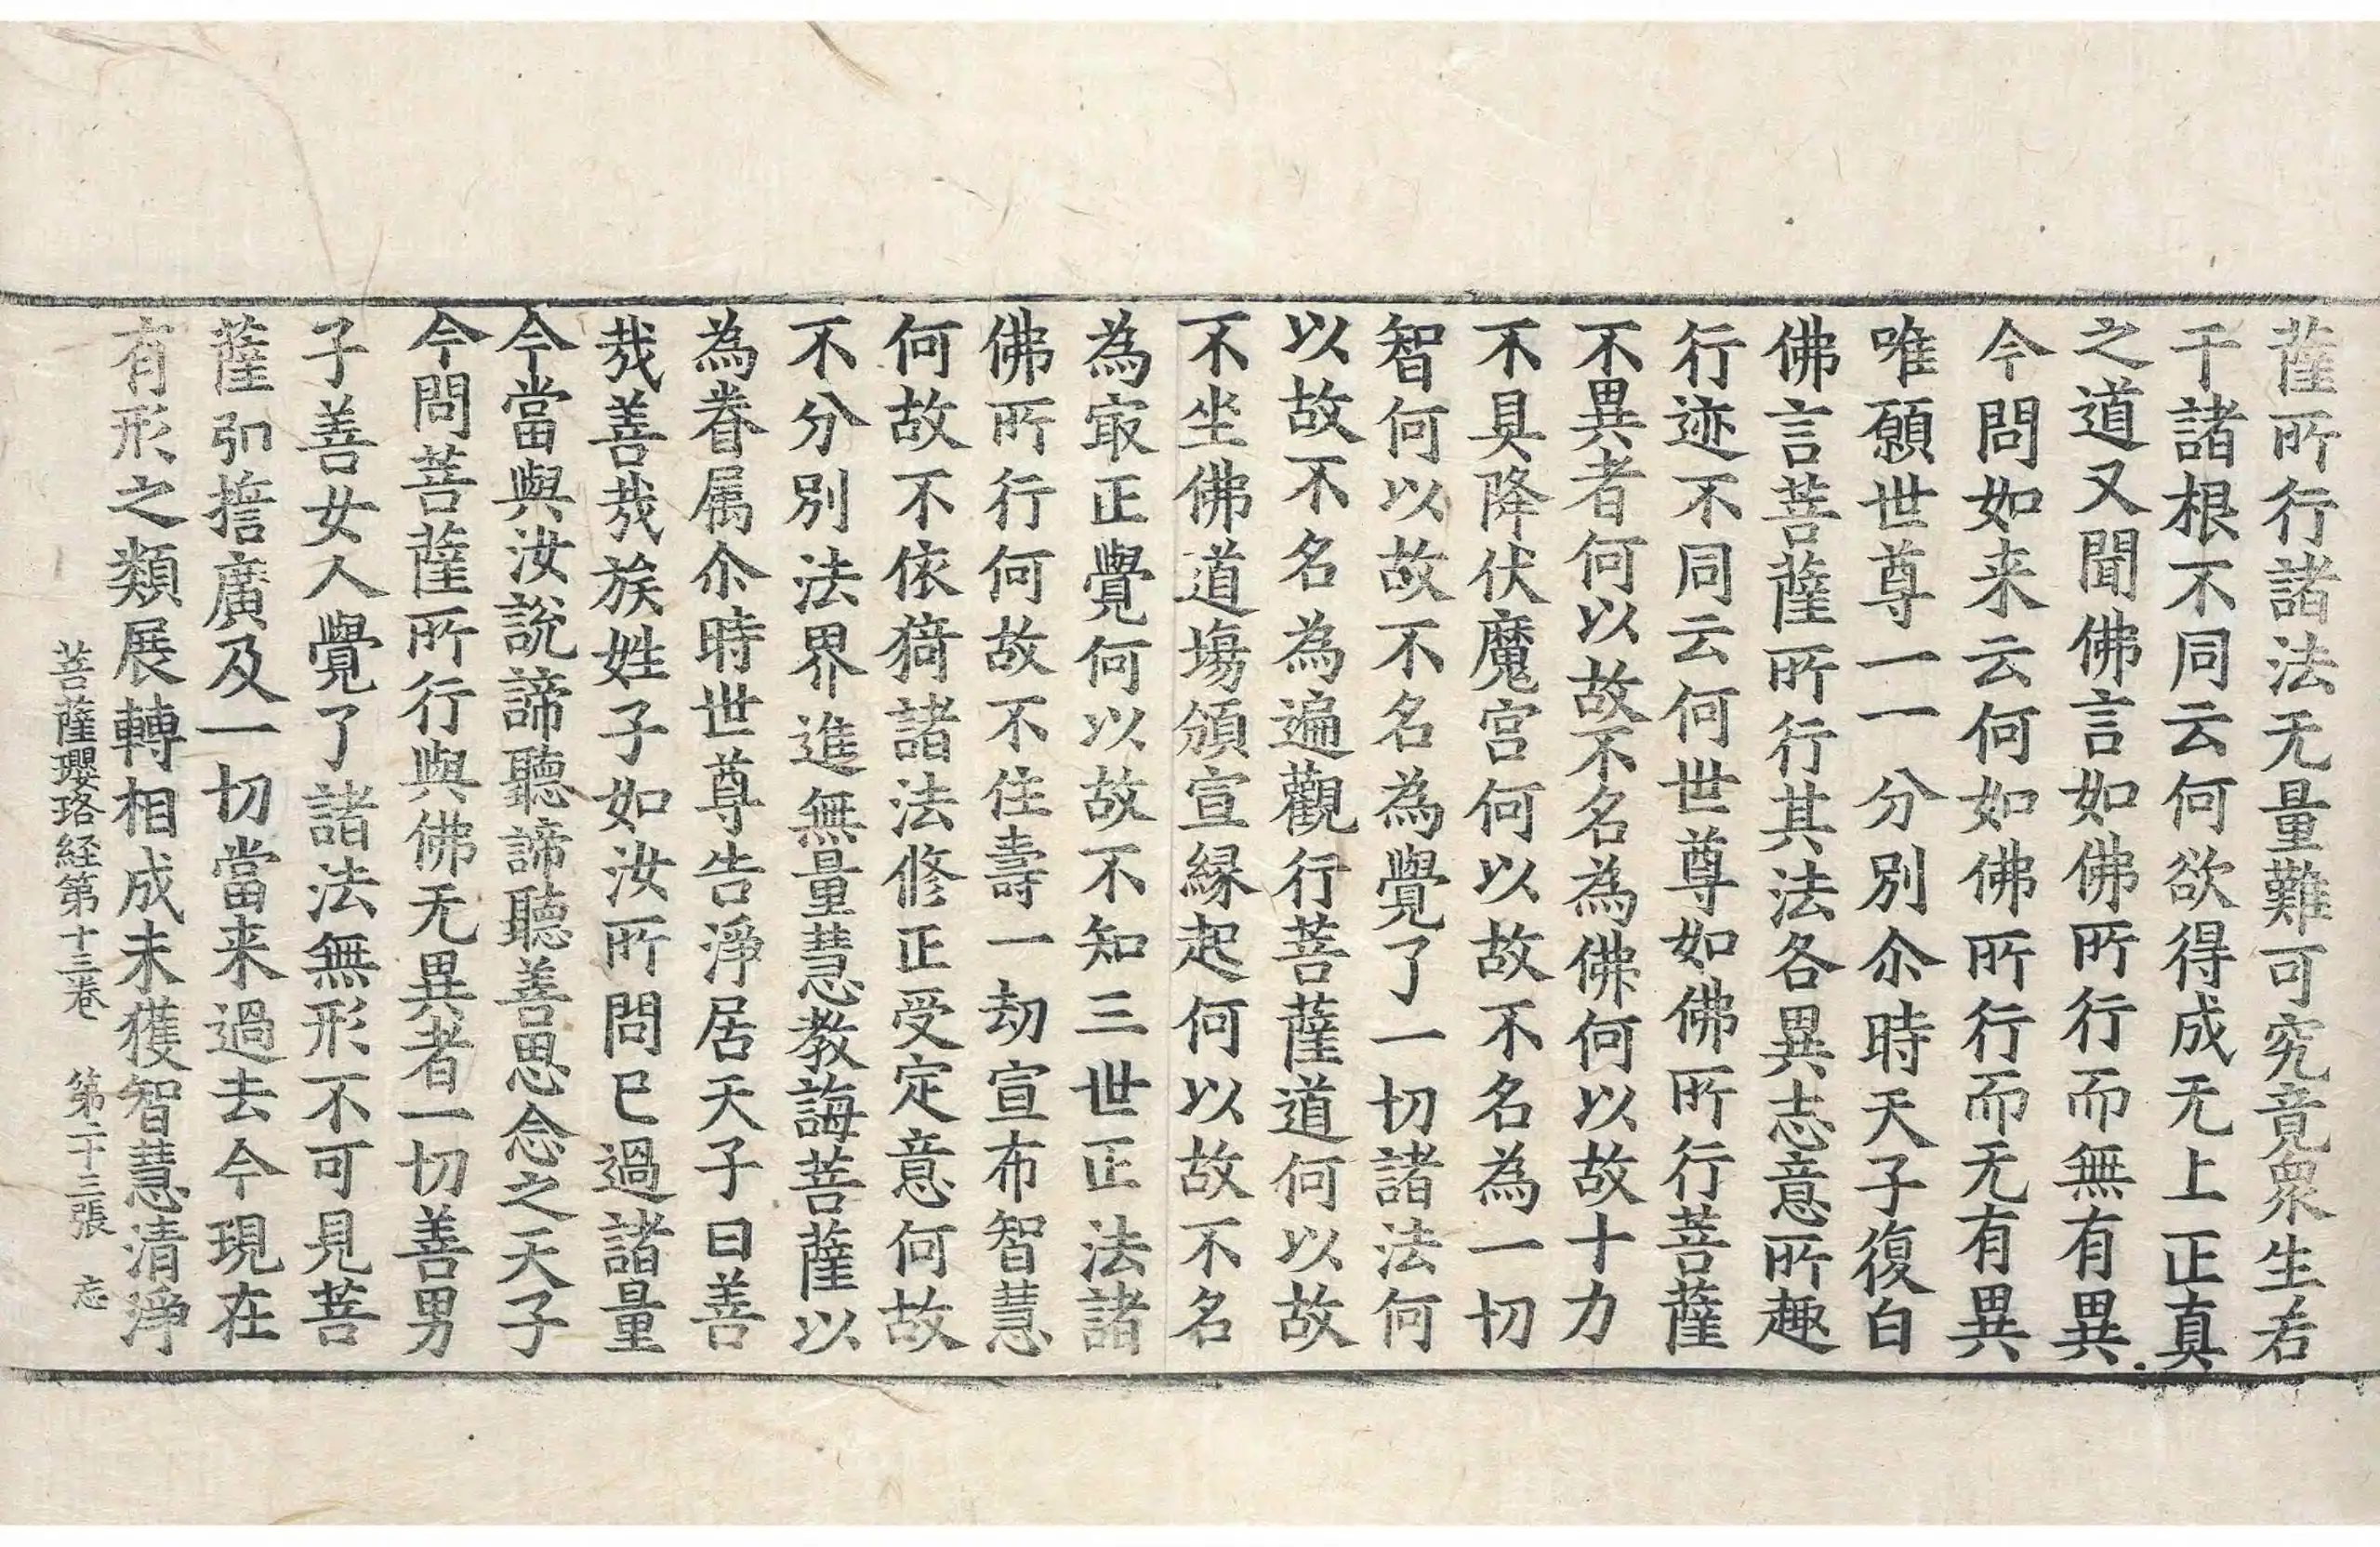 薩所行諸法无量難可究竟衆生若
干諸根不同云何欲得成无上正真
之道又聞佛言如佛所行而無有異
今問如来云何如佛所行而无有異
唯願世尊一一分別尒時天子復白
佛言菩薩所行其法各異志意所趣
行迹不同云何世尊如佛所行菩薩
不異者何以故不名為佛何以故十力
不具降伏魔宮何以故不名為一切
智何以故不名為覺了一切諸法何
以故不名為遍觀行菩薩道何以故
不坐佛道塲頒宣縁起何以故不名
為㝡正覺何以故不知三世正法諸
佛所行何故不住壽一劫宣布智慧
何故不依猗諸法修正受定意何故
不分別法界進無量慧教誨菩薩以
為眷属尒時世尊告淨居天子曰善
㢤善㢤族姓子如汝所問已過諸量
今當與汝說諦聽諦聽善思念之天子
今問菩薩所行與佛无異者一切善男
子善女人覺了諸法無形不可見菩
薩弘擔廣及一切當来過去今現在
有形之類展轉相成未獲智慧清淨
菩薩瓔珞経第十三卷　第二十三張　忘